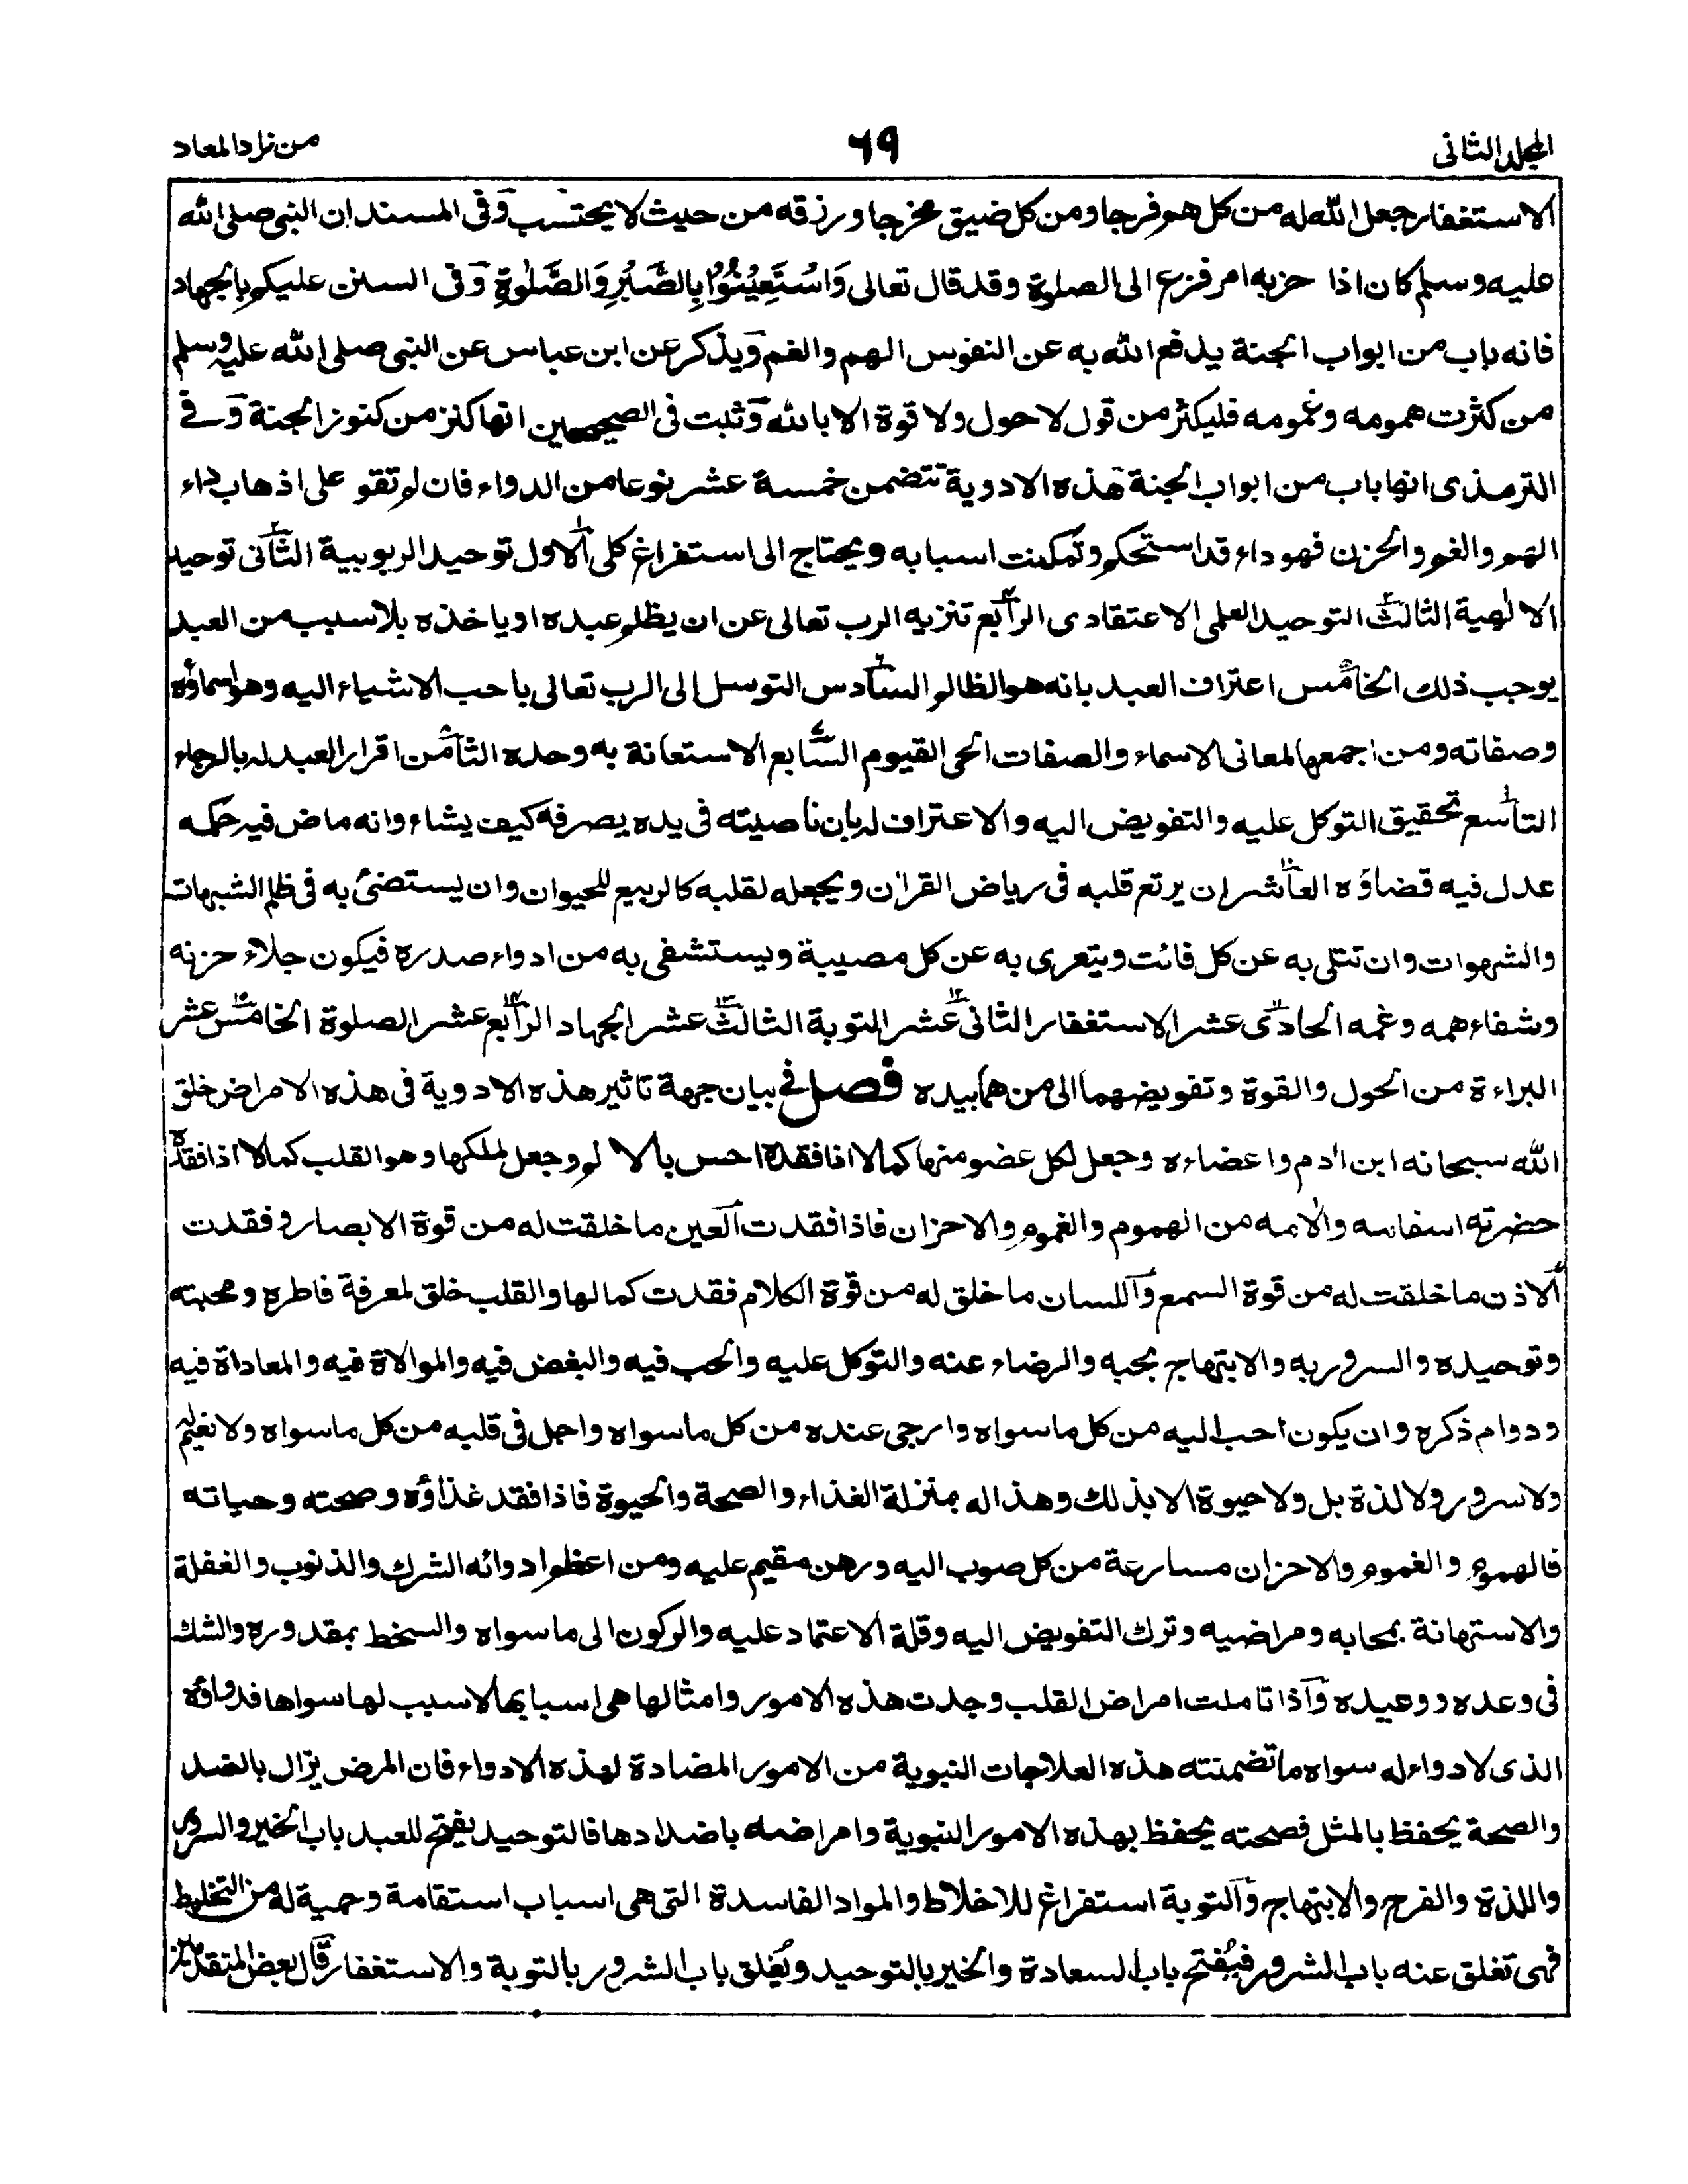 المجلد الثانى
٦٩
من زاد المعاد
الاستغفار جعل الله له من كل هم فرجا ومن كل ضيق مخرجا ورزقه من حيث لا يحتسب وفى المسند ان النبى صلى الله
عليه وسلم كان اذا حزبه امر فزع الى الصلوة وقد قال تعالى وَاسْتَعِيْنُوْا بِالصَّبْرِ وَالصَّلٰوةِ وفى السنن عليكم بالجهاد
فانه باب من ابواب الجنة يدفع الله به عن النفوس الهم والغم ويذكر عن ابن عباس عن النبى صلى الله عليه وسلم
من كثرت همومه وغمومه فليكثر من قول لا حول ولا قوة الا بالله وثبت فى الصحيحين انها كنز من كنوز الجنة وفے
الترمذى انها باب من ابواب الجنة هذه الادوية تتضمن خمسة عشر نوعا من الدواء فان لم تقو على اذهاب داء
الهم والغم والحزن فهو داء قد استحكم وتمكنت اسبابه ويحتاج الى استفراغ كلى الاول توحيد الربوبية الثانى توحيد
الالٰهية الثالث التوحيد العلمى الاعتقادى الرابع تنزيه الرب تعالى عن ان يظلم عبده او ياخذه بلا سبب من العبد
يوجب ذلك الخامس اعتراف العبد بانه هو الظالم السادس التوسل الى الرب تعالى باحب الاشياء اليه وهو اسماؤه
وصفاته ومن اجمعها لمعانى الاسماء والصفات الحى القيوم السابع الاستعانة به وحده الثامن اقرار العبد له بالرجاء
التاسع تحقيق التوكل عليه والتفويض اليه والاعتراف له بان ناصيته فى يده يصرفه كيف يشاء وانه ماض فيه حكمه
عدل فيه قضاؤه العاشر ان يرتع قلبه فى رياض القران ويجعله لقلبه كالربيع للحيوان وان يستضئ به فى ظلم الشبهات
والشهوات وان تتلى به عن كل فائت ويتعرى به عن كل مصيبة ويستشفى به من ادواء صدره فيكون جلاء حزنه
وشفاء همه وغمه الحادى عشر الاستغفار الثانى عشر التوبة الثالث عشر الجهاد الرابع عشر الصلوة الخامس عشر
البراءة من الحول والقوة وتفويضهما الى من هما بيده فصل فے بيان جهة تاثير هذه الادوية فى هذه الامراض خلق
الله سبحانه ابن اٰدم واعضاءه وجعل لكل عضو منها كمالا اذا فقده احس بالالم وجعل لملكها وهو القلب كمالا اذا فقده
حضرته اسقامه واٰلامه من الهموم والغموم والاحزان فاذا فقدت العين ما خلقت له من قوة الابصار وفقدت
الاذن ما خلقت له من قوة السمع واللسان ما خلق له من قوة الكلام فقدت كمالها والقلب خلق لمعرفة فاطره ومحبته
وتوحيده والسرور به والابتهاج بحبه والرضاء عنه والتوكل عليه والحب فيه والبغض فيه والموالاة فيه والمعاداة فيه
ودوام ذكره وان يكون احب اليه من كل ما سواه وارجى عنده من كل ما سواه واجل فى قلبه من كل ما سواه ولا نعيم له
ولا سرور ولا لذة بل ولا حيوة الا بذلك وهذا له بمنزلة الغذاء والصحة والحيوة فاذا فقد غذاؤه وصحته وحياته
فالهموم والغموم والاحزان مسارعة من كل صوب اليه ورهن مقيم عليه ومن اعظم ادوائه الشرك والذنوب والغفلة
والاستهانة بمحابه ومراضيه وترك التفويض اليه وقلة الاعتماد عليه والركون الى ما سواه والسخط بمقدوره والشك
فى وعده ووعيده واذا تاملت امراض القلب وجدت هذه الامور وامثالها هى اسبابها لا سبب لها سواها فدواؤه
الذى لا دواء له سواه ما تضمنته هذه العلاجات النبوية من الامور المضادة لهذه الادواء فان المرض يزال بالضد
والصحة يحفظ بالمثل فصحته يحفظ بهذه الامور النبوية وامراضه باضدادها فالتوحيد يفتح للعبد باب الخير والسرور
واللذة والفرح والابتهاج والتوبة استفراغ للاخلاط والمواد الفاسدة التى هى اسباب استقامة وحمية له من التخليط
فهى تغلق عنه باب الشرور فيُفتح باب السعادة والخير بالتوحيد ويُغلق باب الشرور بالتوبة والاستغفار قال بعض المتقدمين